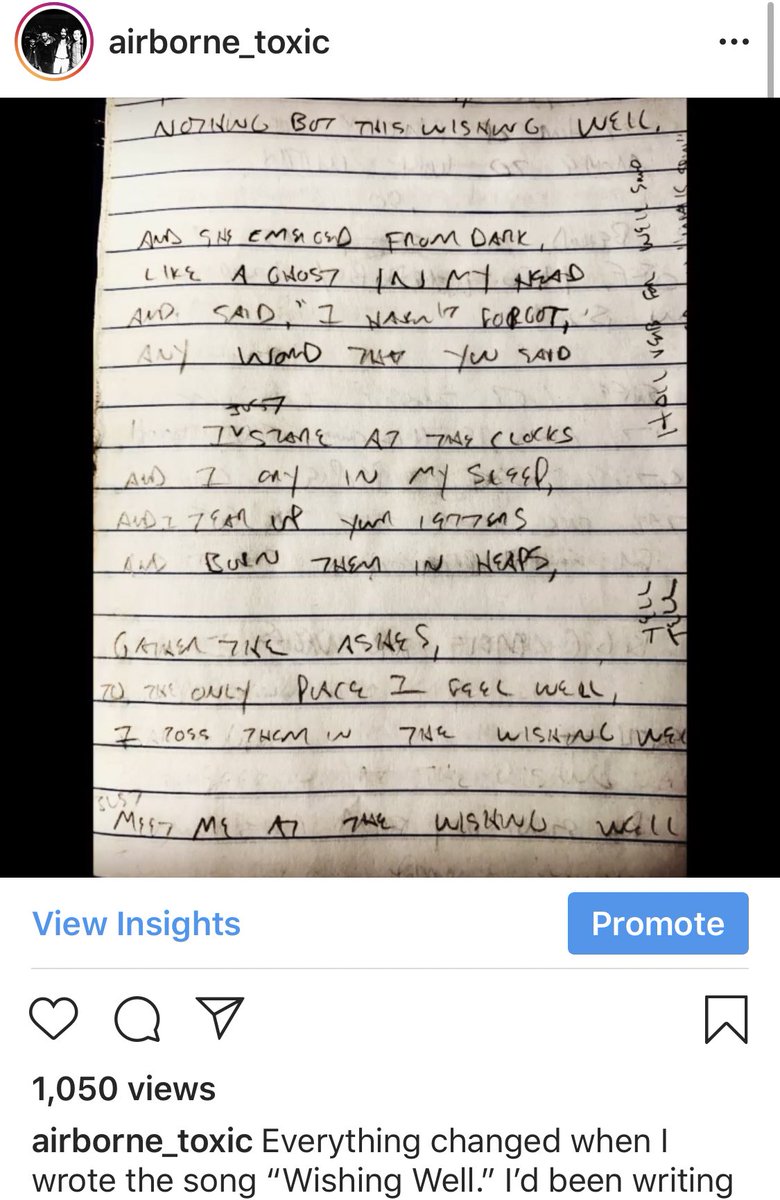 airborne_toxic
NOTHING BUT THIS WISHING WELL.
AND SHE EMERGED FROM DARK,
LIKE A GHOST IN MY HEAD
AND SAID, "I HASN'T FORGOT,
ANY WORD THAT YOU SAID
JUST
I STARE AT THE CLOCKS
AND I CRY IN MY SLEEP,
AND I TEAR UP YOUR LETTERS
AND BURN THEM IN HEAPS,
GATHER THE ASHES,
TO THE ONLY PLACE I FEEL WELL,
I TOSS THEM IN THE WISHING WEL
JUST
MEET ME AT THE WISHING WELL
TELL
TELL
View Insights
Promote
1,050 views
airborne_toxic Everything changed when I
wrote the song “Wishing Well.” I’d been writing